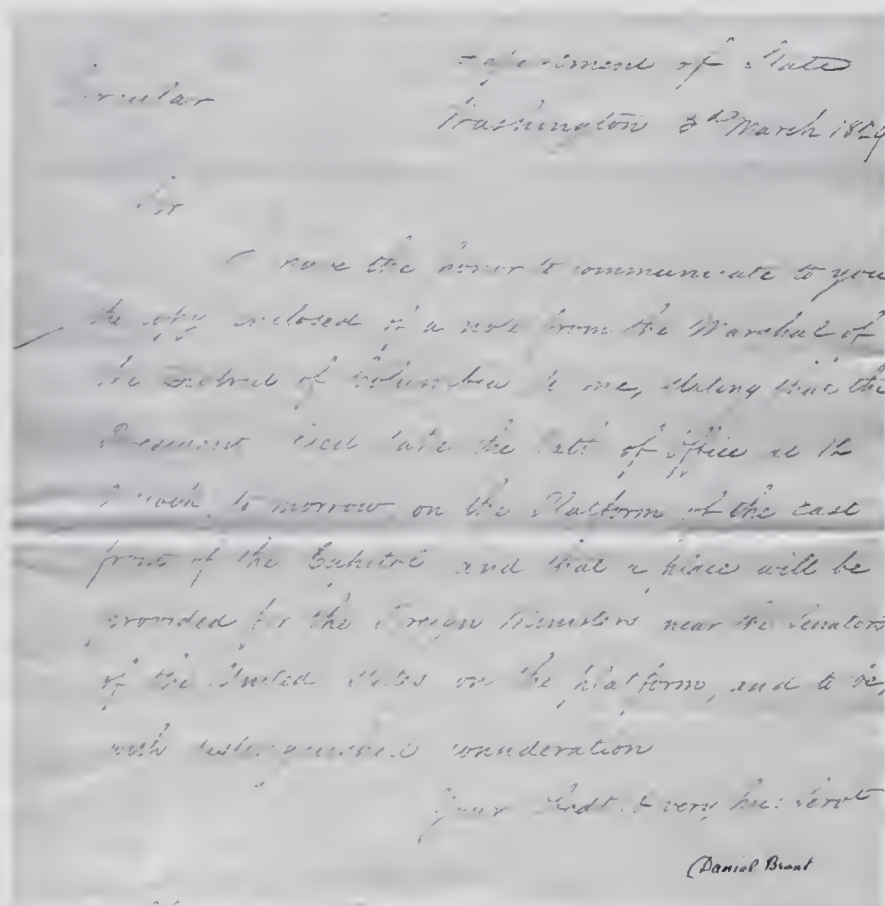 Department of State
Circular
Washington 3d March 1829
Sir
I have the honor to communicate to you
the copy enclosed of a note from the Marshal of
the District of Columbia to me, stating that the
President will take the Oath of Office at 12
noon, to morrow on the Platform of the east
front of the Capitol and that a place will be
provided for the Foreign Ministers near the Senators
of the United States on the platform, and to be,
with distinguished consideration
Your Obdt & very hue Servt
(Daniel Brent